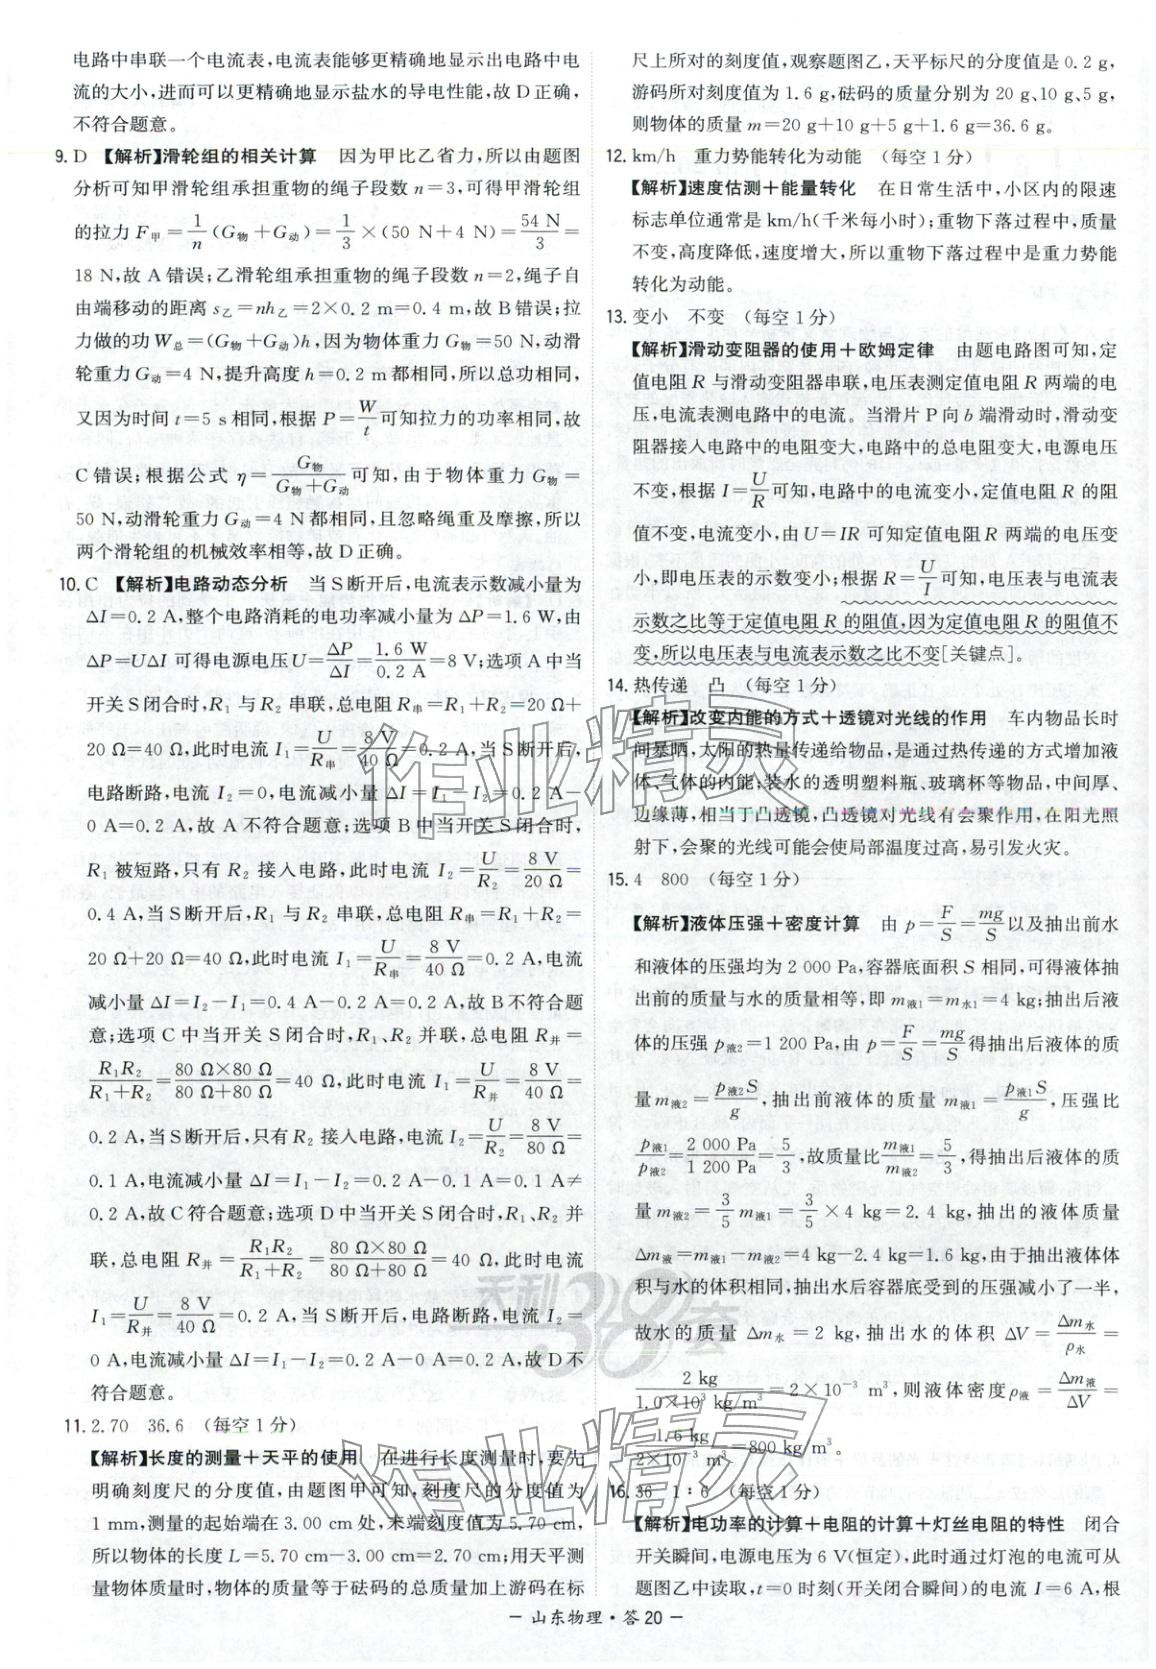 电路中串联一个电流表,电流表能够更精确地显示出电路中电
流的大小,进而可以更精确地显示盐水的导电性能,故 D 正确,
不符合题意。
9. D 【解析】滑轮组的相关计算 因为甲比乙省力,所以由题图
分析可知甲滑轮组承担重物的绳子段数 n=3,可得甲滑轮组
的拉力 F甲=1/n(G物+G动)=1/3×(50 N+4 N)=54 N/3=
18 N,故 A 错误;乙滑轮组承担重物的绳子段数 n=2,绳子自
由端移动的距离 s乙=nh乙=2×0.2 m=0.4 m,故 B 错误;拉
力做的功 W总=(G物+G动)h,因为物体重力 G物=50 N,动滑
轮重力 G动=4 N,提升高度 h=0.2 m 都相同,所以总功相同,
又因为时间 t=5 s 相同,根据 P=W/t可知拉力的功率相同,故
C 错误;根据公式 η=G物/(G物+G动)可知,由于物体重力 G物=
50 N,动滑轮重力 G动=4 N 都相同,且忽略绳重及摩擦,所以
两个滑轮组的机械效率相等,故 D 正确。
10. C 【解析】电路动态分析 当 S 断开后,电流表示数减小量为
ΔI=0.2 A,整个电路消耗的电功率减小量为 ΔP=1.6 W,由
ΔP=UΔI 可得电源电压 U=ΔP/ΔI=1.6 W/0.2 A=8 V;选项 A 中当
开关 S 闭合时,R₁ 与 R₂ 串联,总电阻 R串=R₁+R₂=20 Ω+
20 Ω=40 Ω,此时电流 I₁=U/R串=8 V/40 Ω=0.2 A,当 S 断开后,
电路断路,电流 I₂=0,电流减小量 ΔI=I₁-I₂=0.2 A-
0 A=0.2 A,故 A 不符合题意;选项 B 中当开关 S 闭合时,
R₁ 被短路,只有 R₂ 接入电路,此时电流 I₂=U/R₂=8 V/20 Ω=
0.4 A,当 S 断开后,R₁ 与 R₂ 串联,总电阻 R串=R₁+R₂=
20 Ω+20 Ω=40 Ω,此时电流 I₁=U/R串=8 V/40 Ω=0.2 A,电流
减小量 ΔI=I₂-I₁=0.4 A-0.2 A=0.2 A,故 B 不符合题
意;选项 C 中当开关 S 闭合时,R₁、R₂ 并联,总电阻 R并=
R₁R₂/(R₁+R₂)=(80 Ω×80 Ω)/(80 Ω+80 Ω)=40 Ω,此时电流 I₁=U/R并=8 V/40 Ω=
0.2 A,当 S 断开后,只有 R₂ 接入电路,电流 I₂=U/R₂=8 V/80 Ω=
0.1 A,电流减小量 ΔI=I₁-I₂=0.2 A-0.1 A=0.1 A≠
0.2 A,故 C 符合题意;选项 D 中当开关 S 闭合时,R₁、R₂ 并
联,总电阻 R并=R₁R₂/(R₁+R₂)=(80 Ω×80 Ω)/(80 Ω+80 Ω)=40 Ω,此时电流
I₁=U/R并=8 V/40 Ω=0.2 A,当 S 断开后,电路断路,电流 I₂=
0 A,电流减小量 ΔI=I₁-I₂=0.2 A-0 A=0.2 A,故 D 不
符合题意。
11. 2.70 36.6 (每空 1 分)
【解析】长度的测量+天平的使用 在进行长度测量时,要先
明确刻度尺的分度值,由题图甲可知,刻度尺的分度值为
1 mm,测量的起始端在 3.00 cm 处,末端刻度值为 5.70 cm,
所以物体的长度 L=5.70 cm-3.00 cm=2.70 cm;用天平测
量物体质量时,物体的质量等于砝码的总质量加上游码在标
尺上所对的刻度值,观察题图乙,天平标尺的分度值是 0.2 g,
游码所对刻度值为 1.6 g,砝码的质量分别为 20 g、10 g、5 g,
则物体的质量 m=20 g+10 g+5 g+1.6 g=36.6 g。
12. km/h 重力势能转化为动能 (每空 1 分)
【解析】速度估测+能量转化 在日常生活中,小区内的限速
标志单位通常是 km/h(千米每小时);重物下落过程中,质量
不变,高度降低,速度增大,所以重物下落过程中是重力势能
转化为动能。
13. 变小 不变 (每空 1 分)
【解析】滑动变阻器的使用+欧姆定律 由题电路图可知,定
值电阻 R 与滑动变阻器串联,电压表测定值电阻 R 两端的电
压,电流表测电路中的电流。当滑片 P 向 b 端滑动时,滑动变
阻器接入电路中的电阻变大,电路中的总电阻变大,电源电压
不变,根据 I=U/R可知,电路中的电流变小,定值电阻 R 的阻
值不变,电流变小,由 U=IR 可知定值电阻 R 两端的电压变
小,即电压表的示数变小;根据 R=U/I可知,电压表与电流表
示数之比等于定值电阻 R 的阻值,因为定值电阻 R 的阻值不
变,所以电压表与电流表示数之比不变[关键点]。
14. 热传递 凸 (每空 1 分)
【解析】改变内能的方式+透镜对光线的作用 车内物品长时
间暴晒,太阳的热量传递给物品,是通过热传递的方式增加液
体、气体的内能;装水的透明塑料瓶、玻璃杯等物品,中间厚、
边缘薄,相当于凸透镜,凸透镜对光线有会聚作用,在阳光照
射下,会聚的光线可能会使局部温度过高,易引发火灾。
15. 4 800 (每空 1 分)
【解析】液体压强+密度计算 由 p=F/S=mg/S以及抽出前水
和液体的压强均为 2 000 Pa,容器底面积 S 相同,可得液体抽
出前的质量与水的质量相等,即 m液1=m水1=4 kg;抽出后液
体的压强 p液2=1 200 Pa,由 p=F/S=mg/S得抽出后液体的质
量 m液2=p液2S/g,抽出前液体的质量 m液1=p液1S/g,压强比
p液1/p液2=2 000 Pa/1 200 Pa=5/3,故质量比m液1/m液2=5/3,得抽出后液体的质
量 m液2=3/5 m液1=3/5×4 kg=2.4 kg,抽出的液体质量
Δm液=m液1-m液2=4 kg-2.4 kg=1.6 kg,由于抽出液体体
积与水的体积相同,抽出水后容器底受到的压强减小了一半,
故水的质量 Δm水=2 kg,抽出水的体积 ΔV=Δm水/ρ水=
2 kg/(1.0×10³ kg/m³)=2×10⁻³ m³,则液体密度ρ液=Δm液/ΔV=
1.6 kg/(2×10⁻³ m³)=800 kg/m³。
16. 36 1∶6 (每空 1 分)
【解析】电功率的计算+电阻的计算+灯丝电阻的特性 闭合
开关瞬间,电源电压为 6 V(恒定),此时通过灯泡的电流可从
题图乙中读取,t=0 时刻(开关闭合瞬间)的电流 I=6 A,根
作业精灵
天利38套
作业精灵
- 山东物理·答 20 -